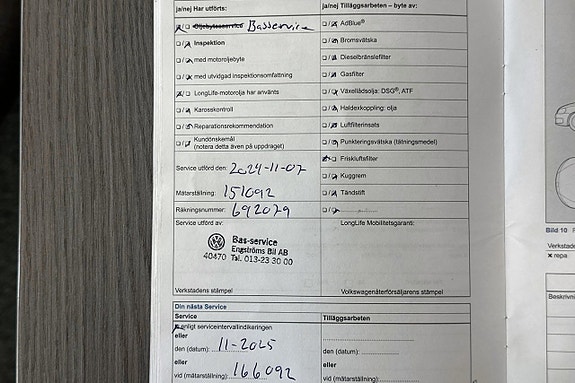 ja/nej Har utförts:
Oljebytesservice Basservice
Inspektion
med motoroljebyte
med utvidgad inspektionsomfattning
LongLife-motorolja har använts
Karosskontroll
Reparationsrekommendation
Kundönskemål
(notera detta även på uppdraget)
Service utförd den: 2024-11-07
Mätarställning: 151092
Räkningsnummer: 692079
Service utförd av:
Bas-service
Engströms Bil AB
40470 Tel. 013-23 30 00
Verkstadens stämpel
ja/nej Tilläggsarbeten – byte av:
AdBlue®
Bromsvätska
Dieselbränslefilter
Gasfilter
Växellådsolja: DSG®, ATF
Haldexkoppling: olja
Luftfilterinsats
Punkteringsvätska (tätningsmedel)
Friskluftsfilter
Kuggrem
Tändstift
LongLife Mobilitetsgaranti:
Volkswagenåterförsäljarens stämpel
Din nästa Service
Service
enligt serviceintervallindikeringen
eller
den (datum): 11-2025
eller
vid (mätarställning): 166092
Tilläggsarbeten
den (datum):
eller
vid (mätarställning):
Bild 10
Verkstade
repa
Beskrivni